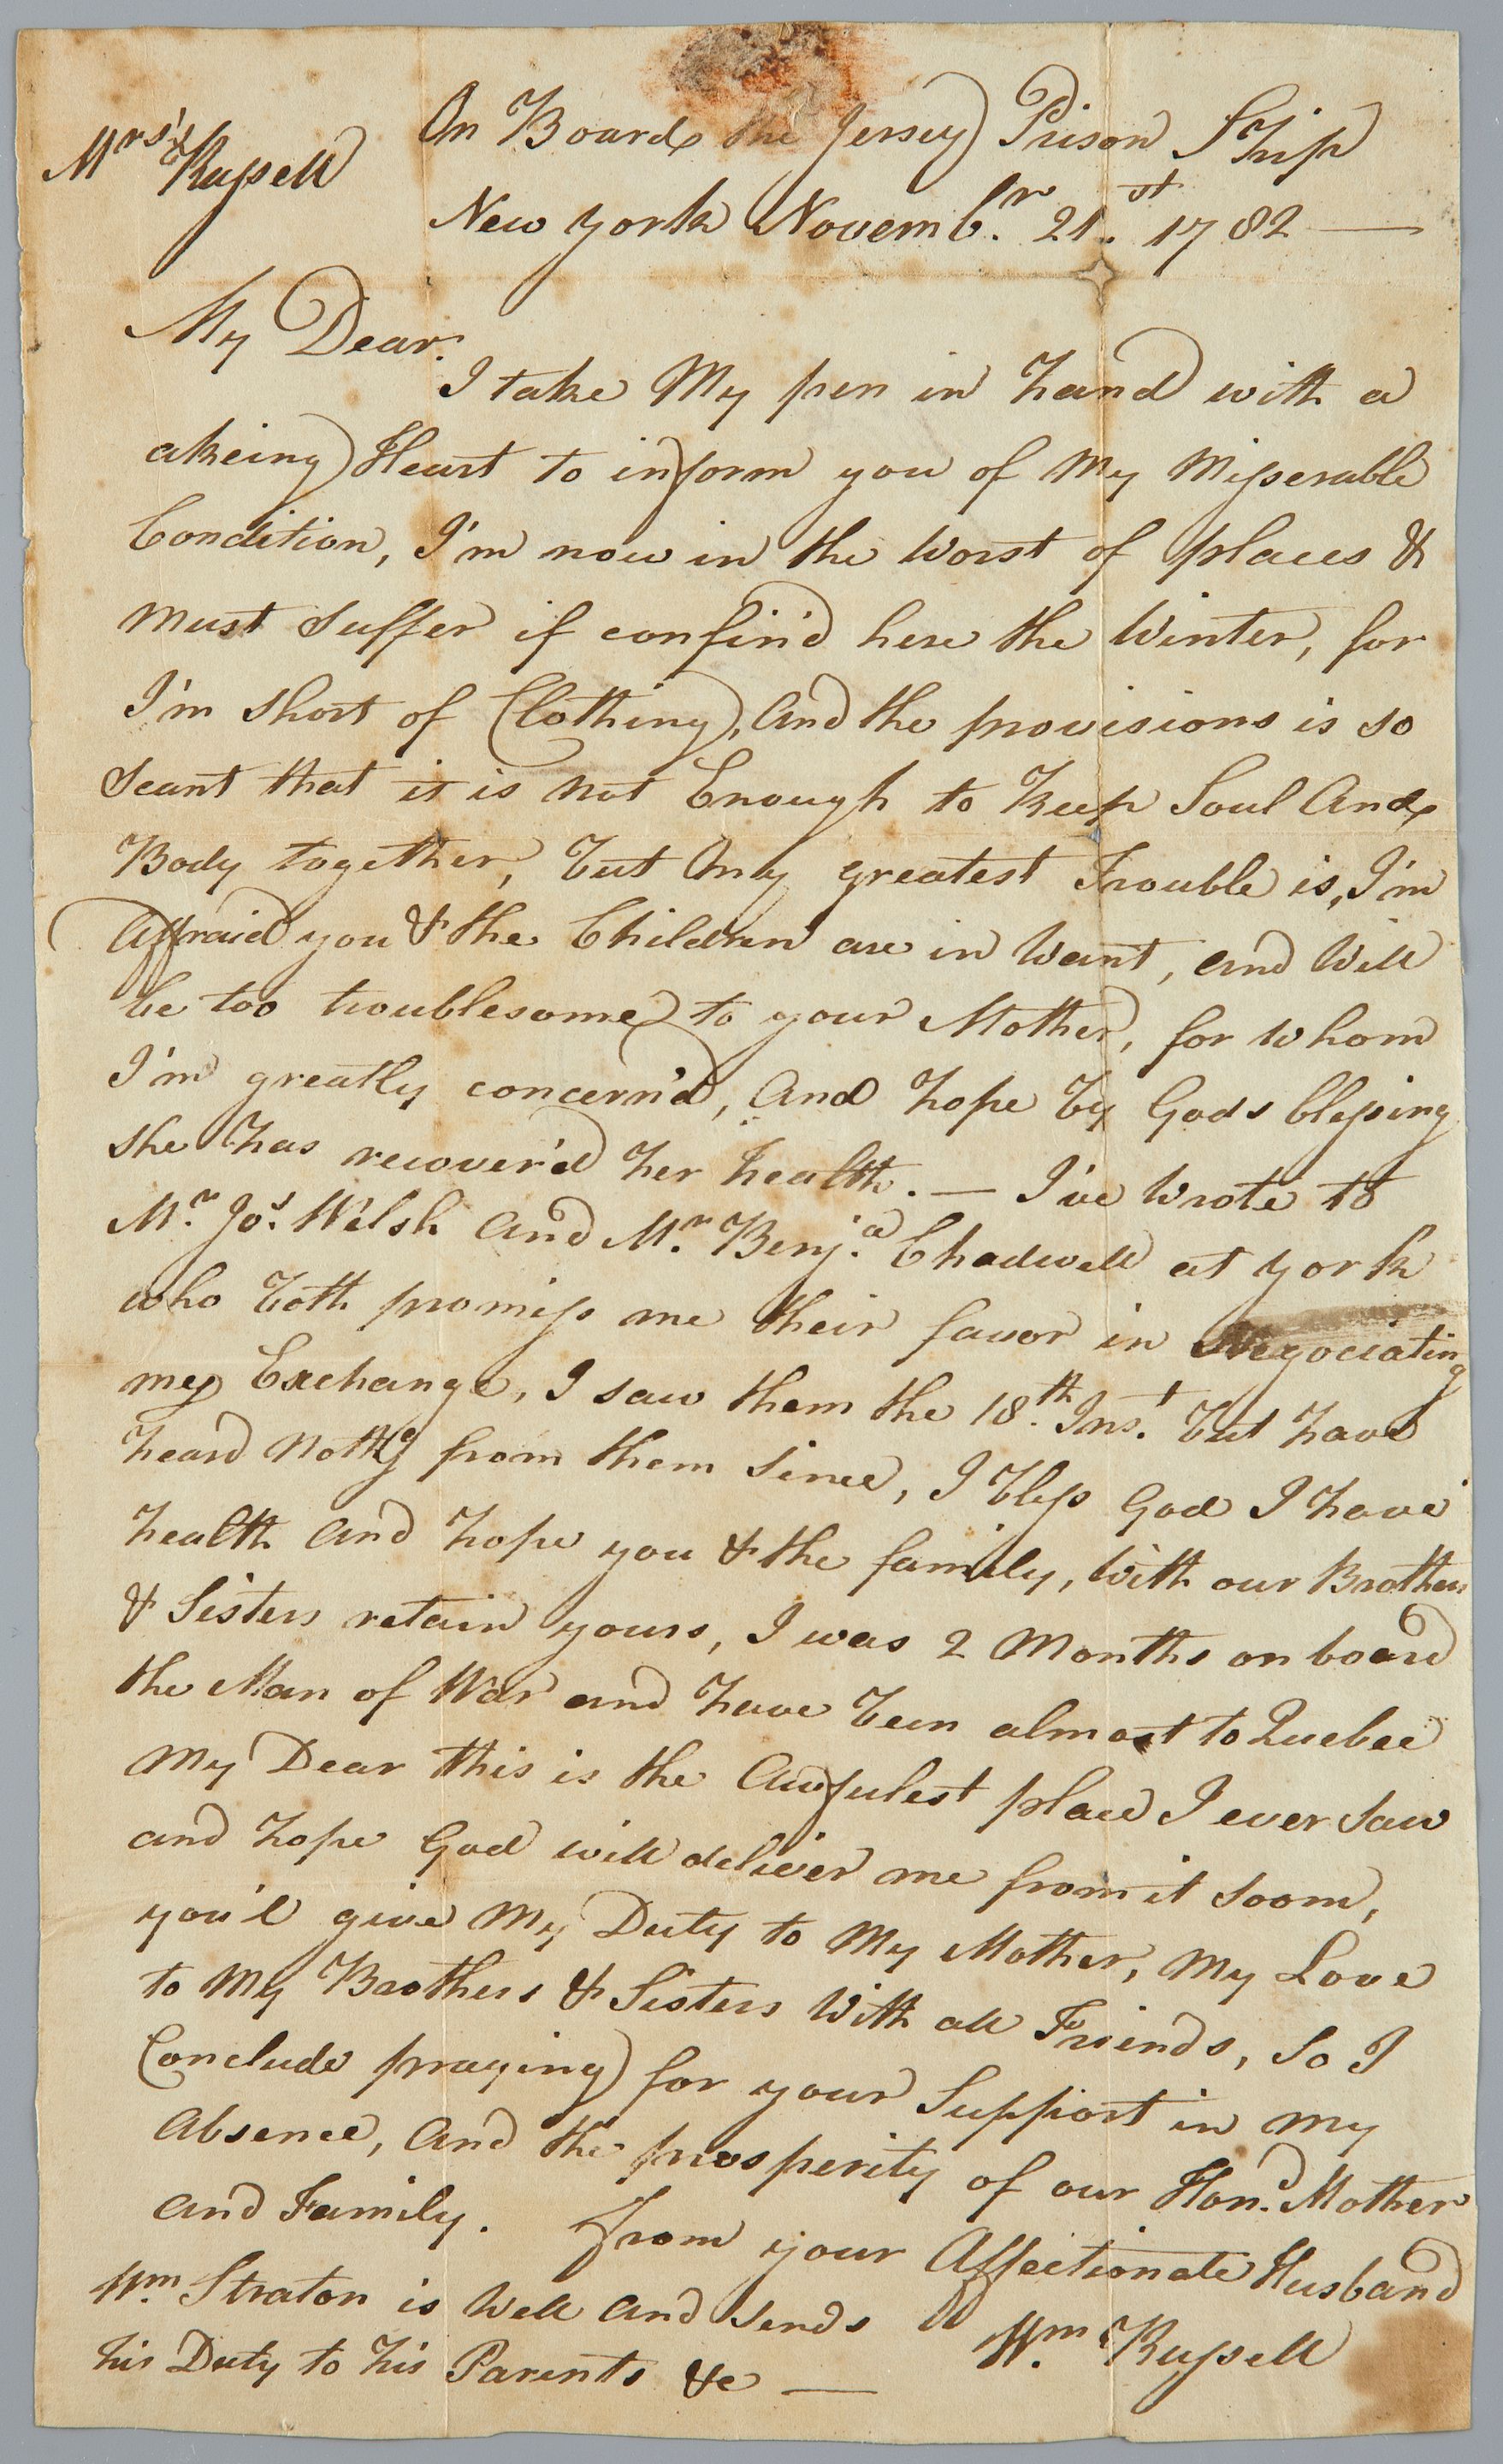 Mrs. Russell
On Board the Jersey Prison Ship
New york Novembr. 21st. 1782 —
My Dear.
I take My pen in hand with a
akeing Heart to inform you of My Misserable
Condition, I'm now in the Worst of places &
Must Suffer if confin'd here the Winter, for
I'm short of Clothing, And the provisions is so
Scant that it is not Enough to keep Soul And
Body together, but My greatest Trouble is, I'm
Affraid you & the Children are in Want, and Will
be too troublesome to your Mother, for Whom
I'm greatly concern'd, And hope by Gods blessing
she has recover'd her health. — I've Wrote to
Mr. Jos. Welsh and Mr. Benja. Chadwell at york
who both promiss me their favor in Negociating
my Exchange, I saw them the 18th. Inst. but have
heard nothg from them Since, I bless God I have
health and hope you & the family, With our Brothers
& Sisters retain yours, I was 2 Months on board
the Man of War and have been almost to Quebec
My Dear this is the Awfulest place I ever Saw
and hope God will deliver me from it Soon,
you'l give My Duty to My Mother, My Love
to My Brothers & Sisters With all Friends, So I
Conclude praying for your Support in My
Absence, And the prosperity of our Hond. Mother
and Family. from your Affectionate Husband
Wm. Russell
Wm. Straton is Well and Sends
his Duty to his Parents &c —